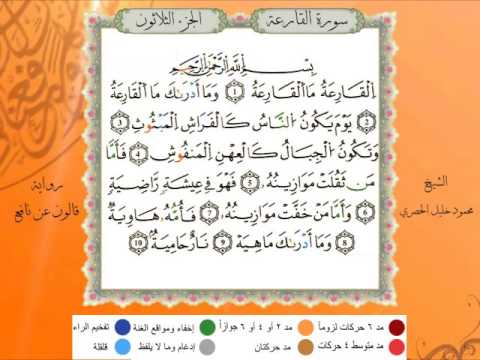 سورة القارعة
الجزء الثلاثون
بِسْمِ اللَّهِ الرَّحْمَٰنِ الرَّحِيمِ
اَلْقَارِعَةُ مَا اَلْقَارِعَةُ ١ وَمَا أَدْرَىٰكَ مَا اَلْقَارِعَةُ
٢ يَوْمَ يَكُونُ اُلنَّاسُ كَالْفَرَاشِ اِلْمَبْثُوثِ ٣
وَتَكُونُ اُلْجِبَالُ كَالْعِهْنِ اِلْمَنفُوشِ ٤ فَأَمَّا
مَن ثَقُلَتْ مَوَازِينُهُ ٥ فَهُوَ فِي عِيشَةٍ رَّاضِيَةٍ
٦ وَأَمَّا مَنْ خَفَّتْ مَوَازِينُهُ ٧ فَأُمُّهُ هَاوِيَةٌ
٨ وَمَا أَدْرَىٰكَ مَاهِيَهْ ٩ نَارٌ حَامِيَةٌ ١٠
الشيخ
محمود خليل الحصري
رواية
قالون عن نافع
مد ٦ حركات لزوماً
مد ٢ أو ٤ أو ٦ جوازاً
إخفاء ومواقع الغنة
تفخيم الراء
مد متوسط ٤ حركات
مد حركتان
إدغام وما لا يلفظ
قلقلة